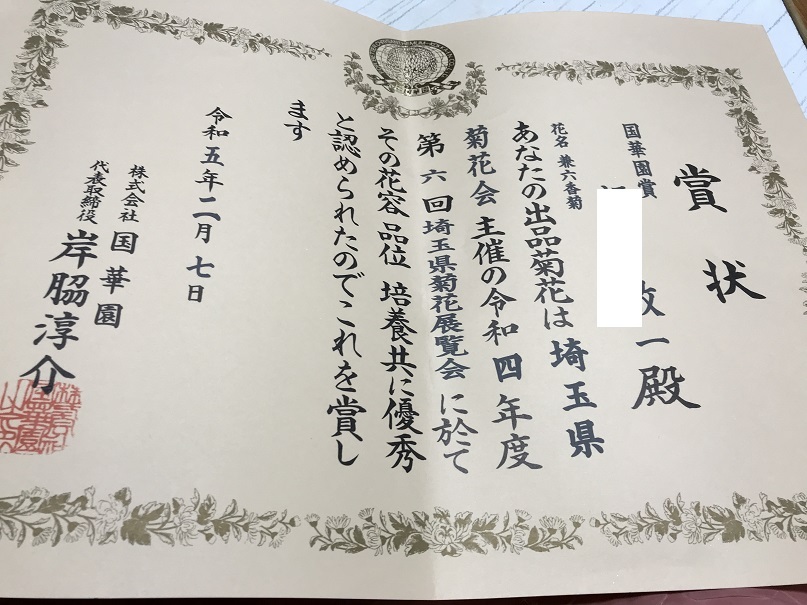 賞状
国華園賞
一殿
花名 兼六香菊
あなたの出品菊花は埼玉県
菊花会主催の令和四年度
第六回埼玉県菊花展覧会に於て
その花容品位 培養共に優秀
と認められたのでこれを賞し
ます
令和五年二月七日
株式会社 国華園
代表取締役 岸脇淳介